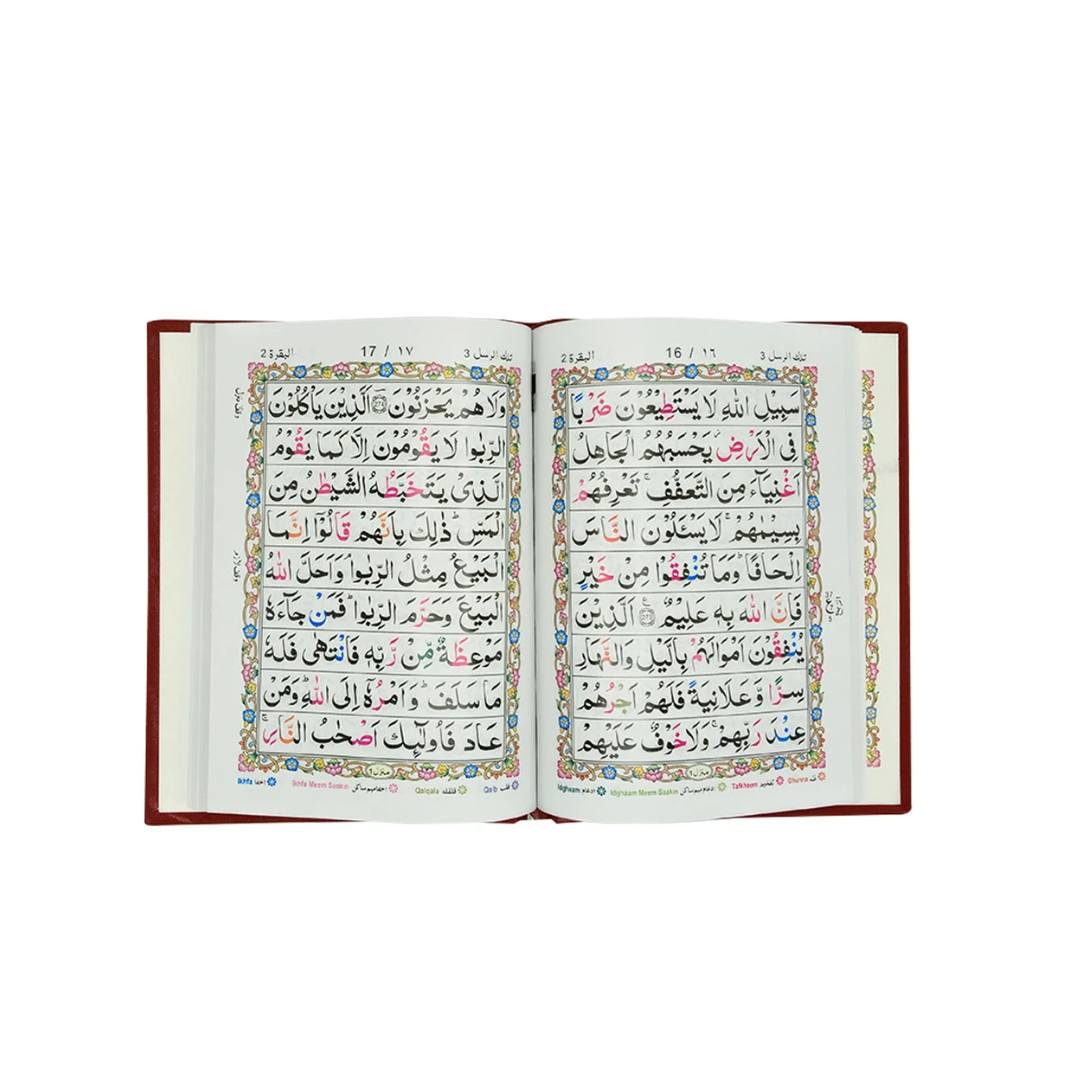 تلك الرسل 3
16 / ١٦
البقرة 2
سَبِيْلِ اللّٰهِ لَا يَسْتَطِيْعُوْنَ ضَرْبًا
فِى الْاَرْضِ يَحْسَبُهُمُ الْجَاهِلُ
اَغْنِيَآءَ مِنَ التَّعَفُّفِ ۚ تَعْرِفُهُمْ
بِسِيْمٰىهُمْ ۚ لَا يَسْـَٔلُوْنَ النَّاسَ
اِلْحَافًا ؕ وَمَا تُنْفِقُوْا مِنْ خَيْرٍ
فَاِنَّ اللّٰهَ بِهٖ عَلِيْمٌ ۝ اَلَّذِيْنَ
يُنْفِقُوْنَ اَمْوَالَهُمْ بِالَّيْلِ وَالنَّهَارِ
سِرًّا وَّعَلَانِيَةً فَلَهُمْ اَجْرُهُمْ
عِنْدَ رَبِّهِمْ ۚ وَلَا خَوْفٌ عَلَيْهِمْ
منزل ١
Ghunna غنه Tafkheem تفخيم Idghaam Meem Saakin ادغام ميم ساكن Idghaam ادغام
تلك الرسل 3
17 / ١٧
البقرة 2
وَلَا هُمْ يَحْزَنُوْنَ ۝ اَلَّذِيْنَ يَاْكُلُوْنَ
الرِّبٰوا لَا يَقُوْمُوْنَ اِلَّا كَمَا يَقُوْمُ
الَّذِىْ يَتَخَبَّطُهُ الشَّيْطٰنُ مِنَ
الْمَسِّ ؕ ذٰلِكَ بِاَنَّهُمْ قَالُوْٓا اِنَّمَا
الْبَيْعُ مِثْلُ الرِّبٰوا ۘ وَاَحَلَّ اللّٰهُ
الْبَيْعَ وَحَرَّمَ الرِّبٰوا ؕ فَمَنْ جَآءَهٗ
مَوْعِظَةٌ مِّنْ رَّبِّهٖ فَانْتَهٰى فَلَهٗ
مَا سَلَفَ ؕ وَاَمْرُهٗٓ اِلَى اللّٰهِ ؕ وَمَنْ
عَادَ فَاُولٰٓئِكَ اَصْحٰبُ النَّارِ ۚ
منزل ١
Qalb قلب Qalqala قلقله Ikhfa Meem Saakin اخفا ميم ساكن Ikhfa اخفا